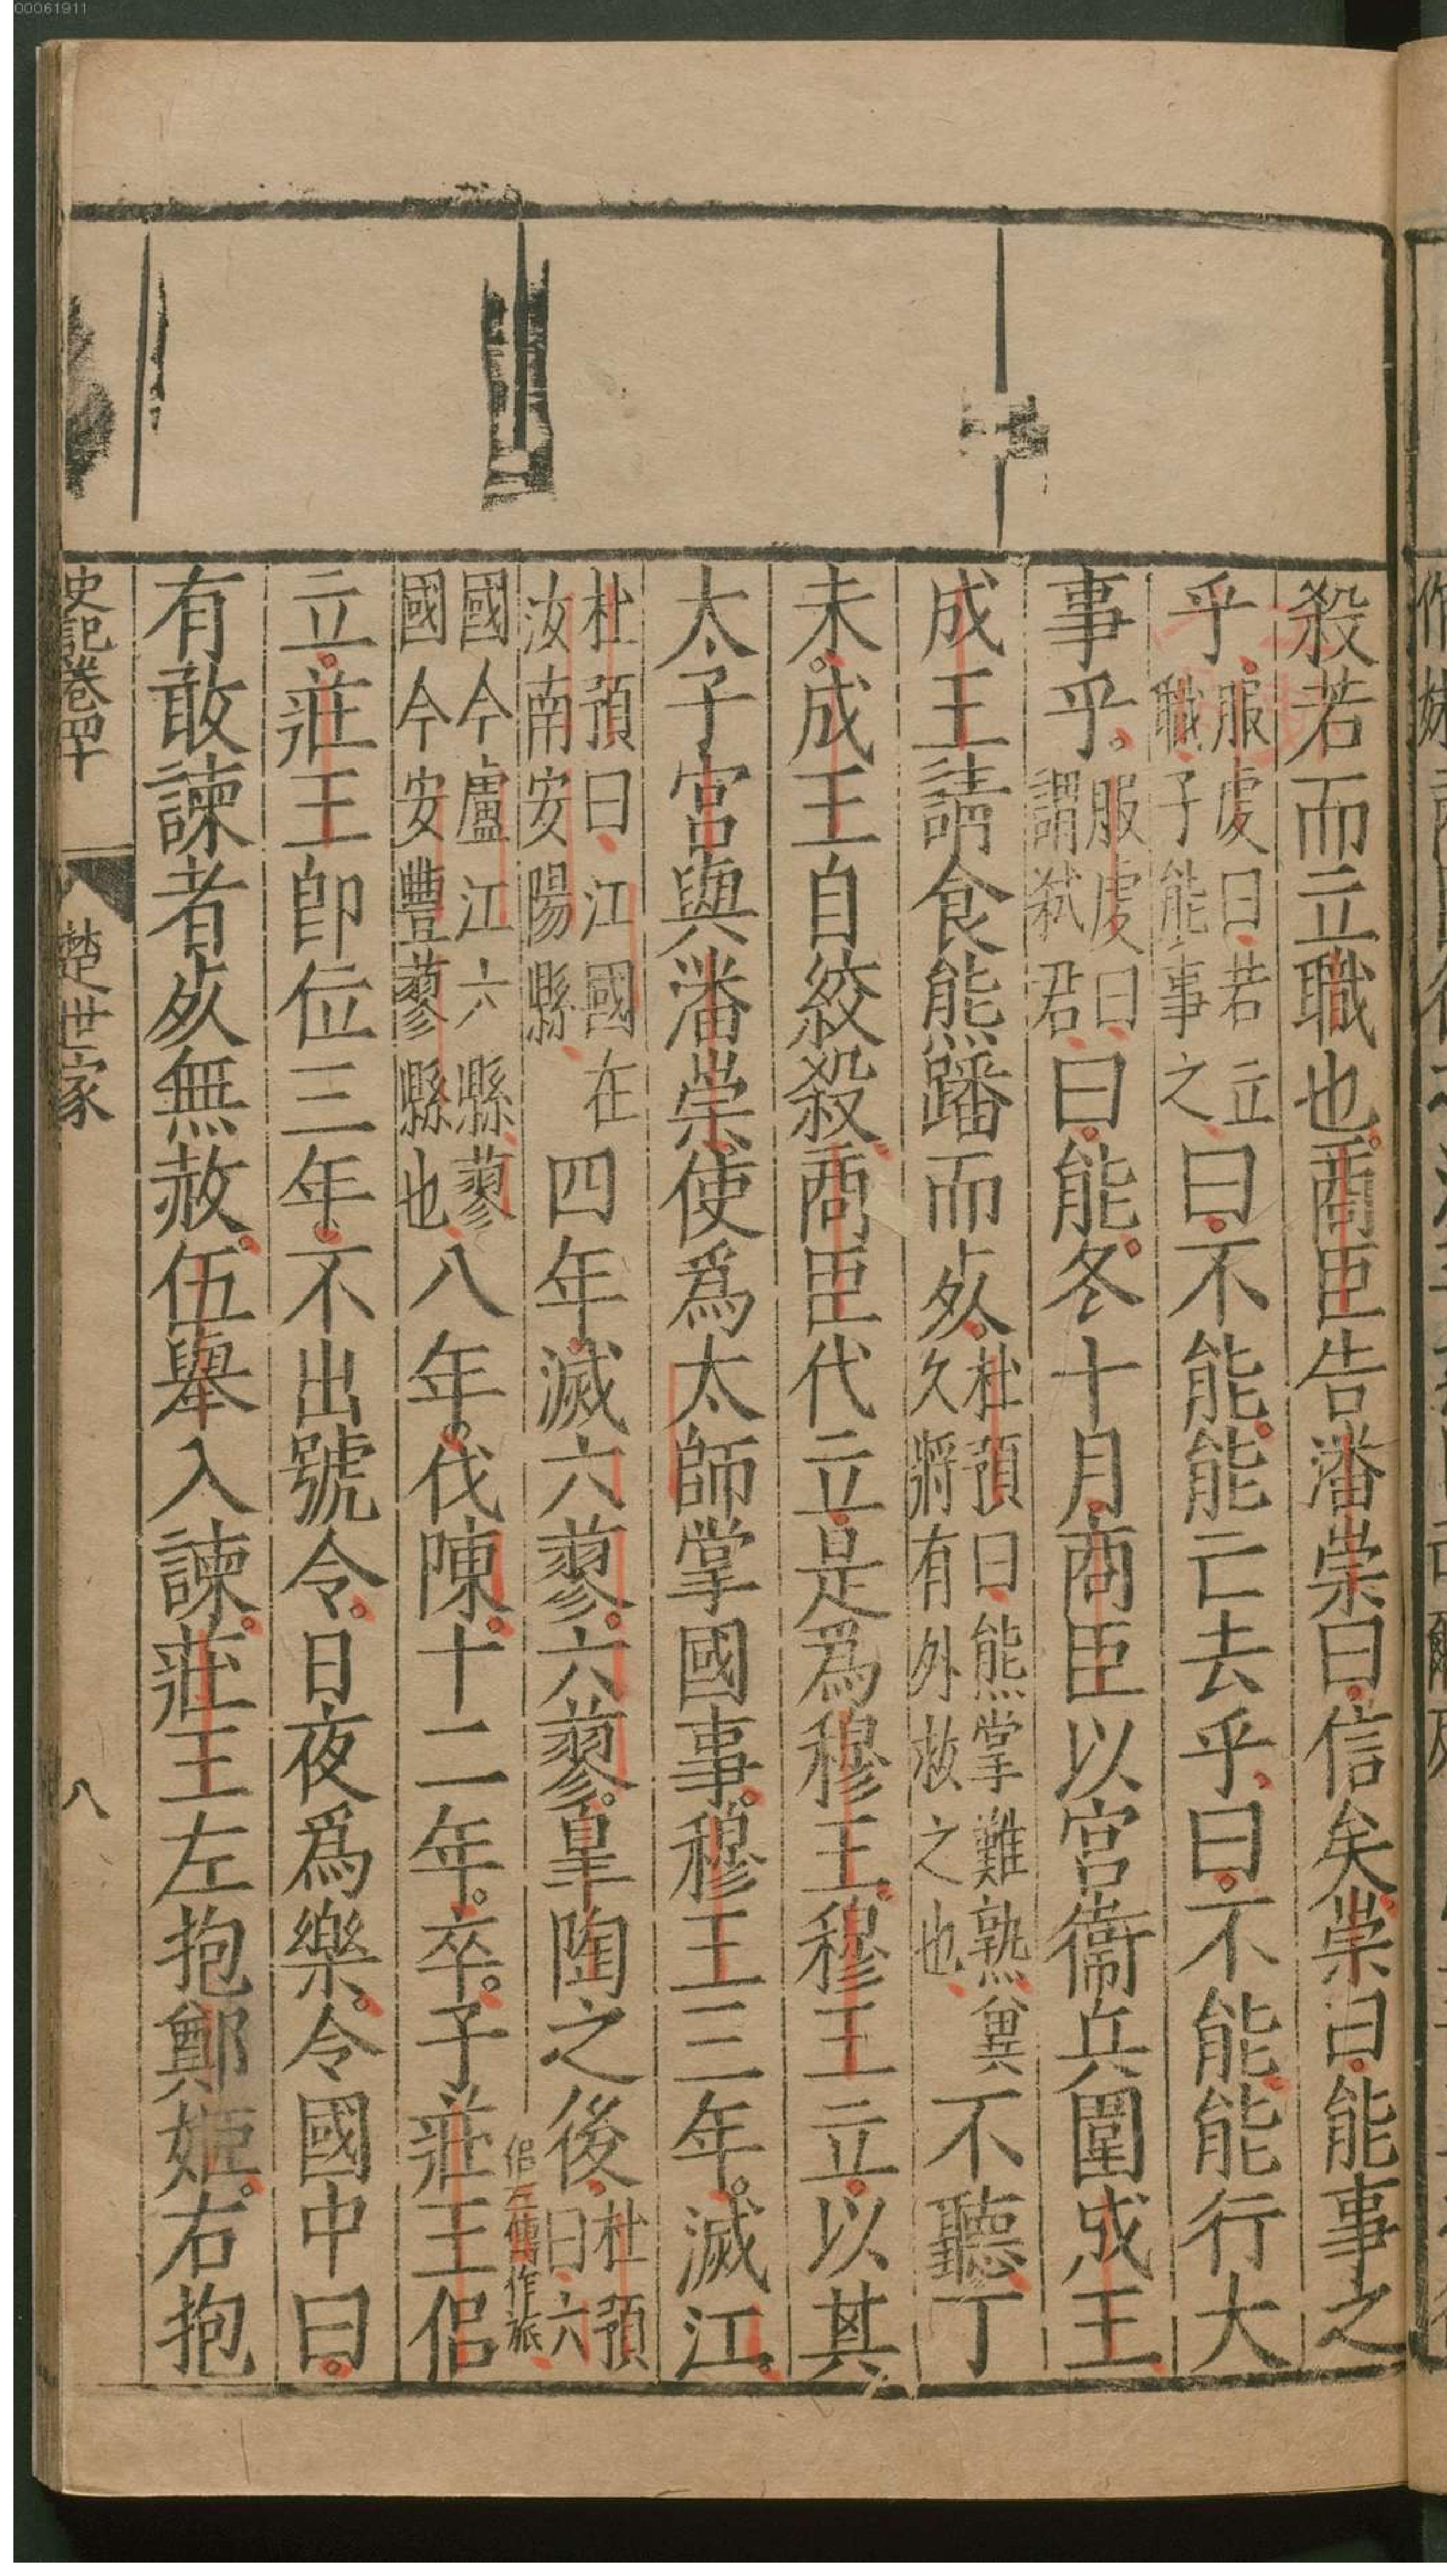 殺若而立職也。商臣告潘崇曰。信矣。崇曰。能事之
乎。服虔曰、若立職、子能事之、曰。不能。能亡去乎、曰。不能。能行大
事乎。服虔曰、謂弒君、曰。能。冬十月。商臣以宮衞兵圍成王
成王請食熊蹯而死。杜預曰、熊掌難熟、冀久將有外救之也、不聽。丁
未。成王自絞殺。商臣代立。是爲穆王。穆王立。以其
太子宮與潘崇。使爲太師。掌國事。穆王三年。滅江。
杜預曰、江國在汝南安陽縣、四年。滅六蓼。六蓼。皐陶之後。杜預曰、六
國今盧江六縣、蓼國今安豐蓼縣也、八年。伐陳。十二年。卒。子莊王侶
侶左傳作旅、
立。莊王卽位三年。不出號令。日夜爲樂。令國中曰。
有敢諫者死無赦。伍舉入諫。莊王左抱鄭姬。右抱
史記卷四十 楚世家 八
00061911